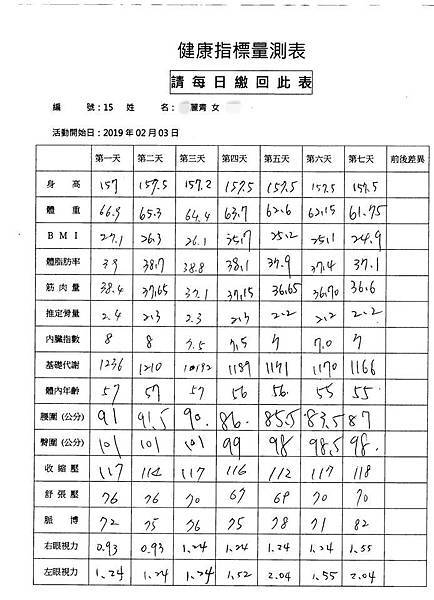 健康指標量測表
請每日繳回此表
編 號:15 姓 名: 麗菁 女
活動開始日:2019 年 02 月 03 日
第一天 第二天 第三天 第四天 第五天 第六天 第七天 前後差異
身 高 157 157.5 157.2 157.5 157.5 157.5 157.5
體 重 66.9 65.3 64.4 63.7 62.6 62.15 61.75
BMI 27.1 26.3 26.1 25.2 25.1 24.9
體脂肪率 39 38.7 38.8 38.1 37.9 37.4 37.1
筋 肉 量 38.4 37.65 37.1 37.15 36.65 36.70 36.6
推定骨量 2.4 2.3 2.3 2.3 2.2 2.2 2.2
內臟指數 8 8 7.5 7.5 7 7.0 7
基礎代謝 1236 1210 1187 1171 1170 1166
體內年齡 57 57 57 56 56. 55 55.
腰圍(公分) 91 91.5 90. 86. 85.5 83.5 87
臀圍(公分) 101 101 101 99 98 98.5 98.
收 縮 壓 117 114 117 116 112 117 118
舒 張 壓 76 76 70 67 69 70 70
脈 博 72 75 76 75 78 71 82
右眼視力 0.93 0.93 1.24 1.24 1.24 1.24 1.55
左眼視力 1.24 1.24 1.24 1.52 2.04 1.55 2.04